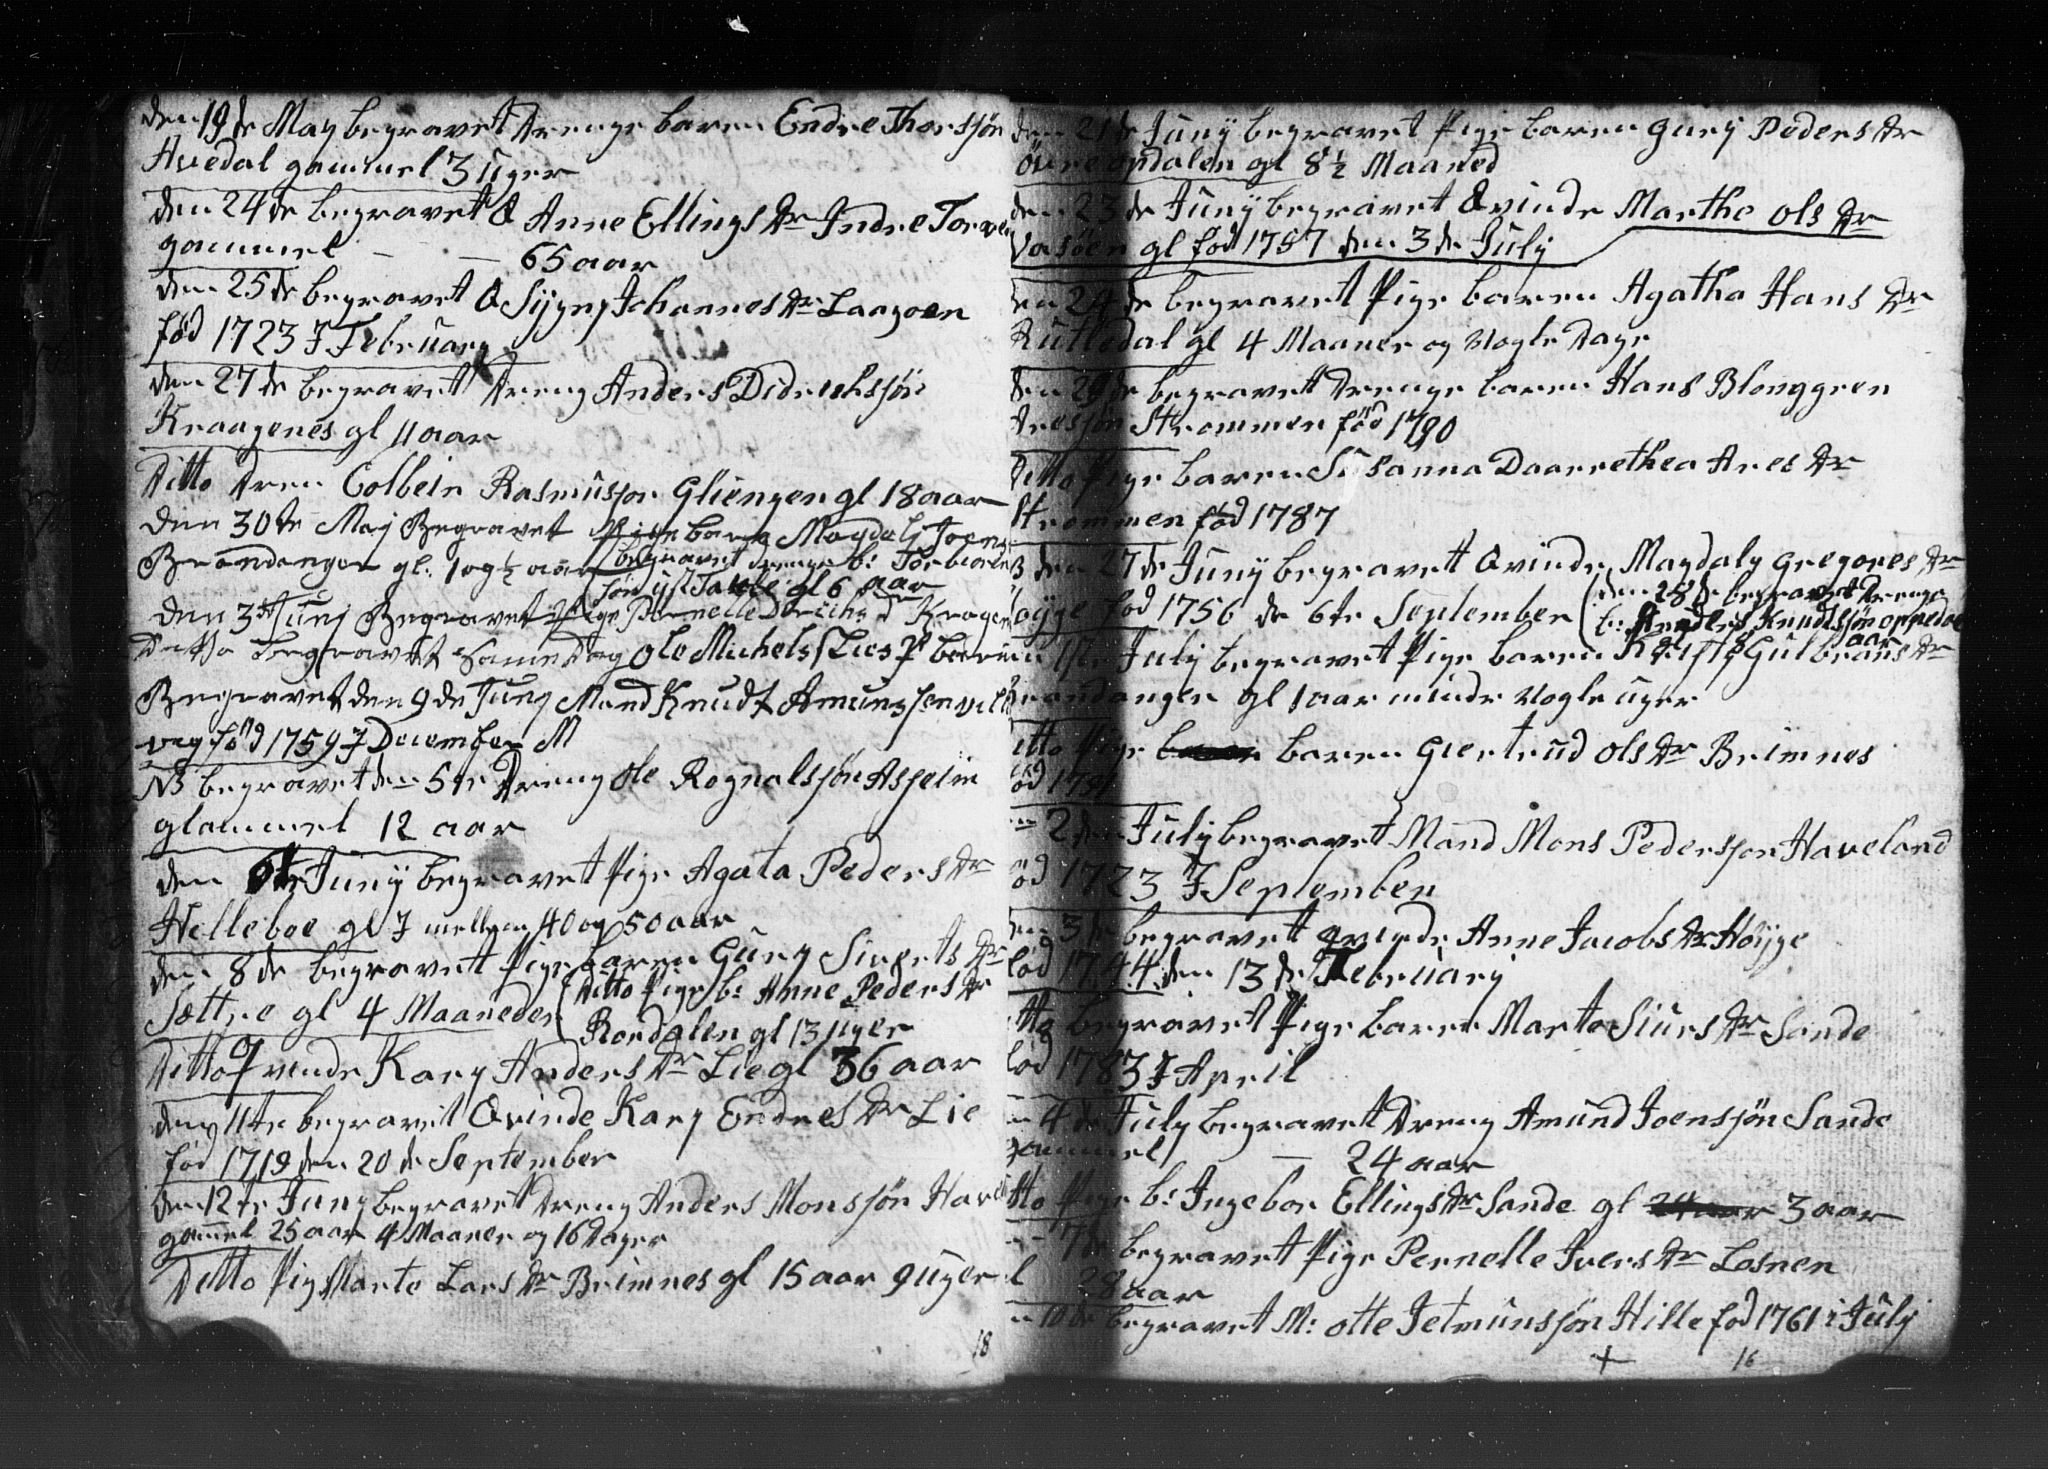 den 19de May begravet drenge baren Endre Thorssøn
Avedal gammel 3 uger
den 24de begravet Q Anne Ellings dr Indre
gammel — — 65 aar
den 25de begravet Q Sygny Johannes dr Laagoen
fød 1723 I February
den 27de begravet dreng Anders Didrichsøn
Kraagenes gl 11 aar
Ditto dren Colbein Rasmussøn Gliengen gl 18 aar
den 30te Maj Begravet Pige barn Magdalj Joens
Brandanger gl. 1 og ½ aar
begravet drenge b: Torbiørn
søn yst Takle gl 6 aar
den 3de Junj Begravet Pige Pernelle Derichs d Kragen
Ditto begravet samme dag Ole Michels
Begravet den 9de Juny Mand Knudt Amunssen
veg fød 1759 I December M
NB begravet den 5te dreng Ole Rognalsøn Asheim
glammel 12 aar
den 6te Juny begravet Pige Agata Peders dr
Helleboe gl I mellom 40 og 50 aar
den 8de begravet Pige baren Gury Siverts dr
Sættre gl 4 Maaneder
Ditto Pige b: Anne Peders dr
Rordalen gl 13 uger
Ditto Qvende Kary Anders dr Lie gl 36 aar
den 11te begravet Qvinde Kary Endres dr Lie
fød 1719 den 20de September
den 12te Juny begravet dreng Anders Monssøn
gammel 25 aar 4 Maaner og 16 dager
Ditto Pig Marte Lars dr Brimnes gl 15 aar 9 uger
18
den 21de Juny begravet Pige baren Gury Peders dr
øvre opdalen gl 8½ Maaned
den 23de Juny begravet Qvinde Marthe Ols dr
Vasøen gl fød 1757 den 3de July
den 24de begravet Pige baren Agatha Hans dr
Rutledal gl 4 Maaner og Nogle dage
den 29de begravet drenge baren Hans Blonggren
Aressøn Strommen fød 1790
Ditto Pige baren Susanna Daarrethea Ares dr
Strommen fød 1787
den 27de Juny begravet Qvinde Magdaly Gregores dr
Høyge fød 1756 de 6te September
den 28de begravet drenge
b: Anders Knudssøn oppedal
aar
1ste July begravet Pige baren Kristi Gulbrans dr
Brandanger gl 1 aar mindr Nogle uger
Ditto Pige baren Giertrud Ols dr Brimnes
fød 1791
2den July begravet Mand Mons Pederssøn Haveland
fød 1723 I September
den 3de begravet qvinde Anne Jacobs dr Høyge
fød 1744 den 13de February
Ditto begravet Pige baren Marte Siurs dr Sande
fød 1783 I April
4de July begravet dreng Amund Joenssøn Sande
gammel — 24 aar
Ditto Pige b: Ingebor Ellings dr Sande gl 3 aar
7de begravet Pige Pernelle Ivers dr Losnen
gl 28 aar
10de begravet M: Otte Jetmunssøn Hille fød 1761 i July
+ 16